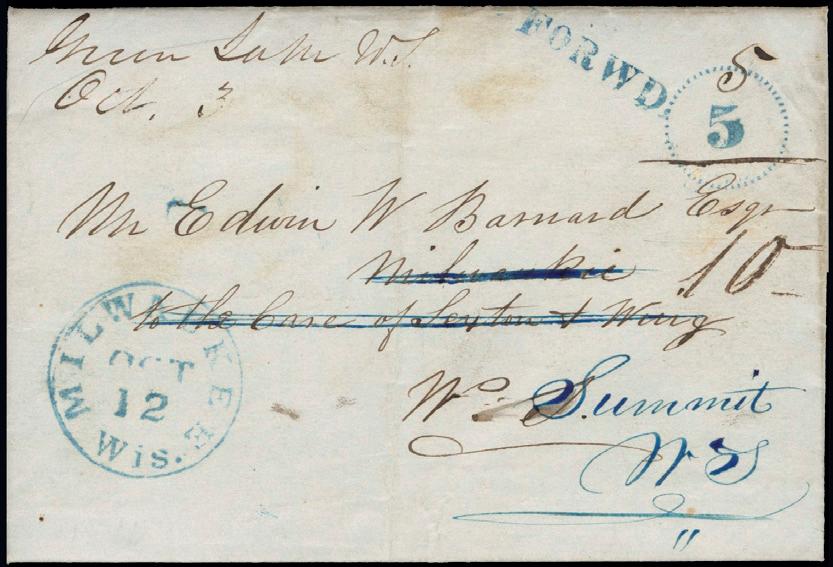 Green Lake W.T.
Oct. 3
FORWD.
5
5
Mr Edwin W Barnard Esqr
Milwaukie
10
to the Care of Sexton & Wing
W.T.
Summit
W T
MILWAUKEE
OCT
12
Wis.